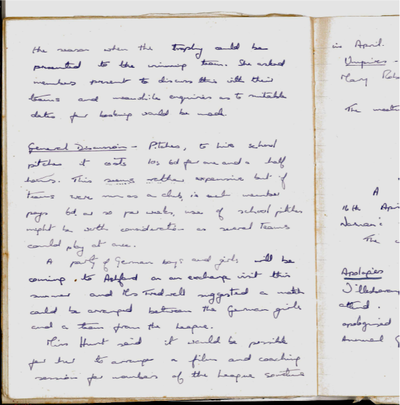 the season when the trophy could be
presented to the winning team. She asked
members present to discuss this with their
teams and enquiries as to suitable
dates for booking would be made
General Discussion - Pitches, to hire school
pitches it costs 10s 6d for one and a half
hours. This seems rather expensive but if
teams were run as a club, ie each member
pays 6d, or so per week, use of school pitches
might be worth consideration as several teams
could play at once.
A party of German boys and girls will be
coming to Ashford on an exchange visit this
summer and Mrs Tredwell suggested a match
could be arranged between the German girls
and a team from the League.
Miss Hunt said it would be possible
for her to arrange a film and coaching
session for members of the League
in April.
Umpires -
Mary
The
A
16th April
The
Apologies
attend.
apologised